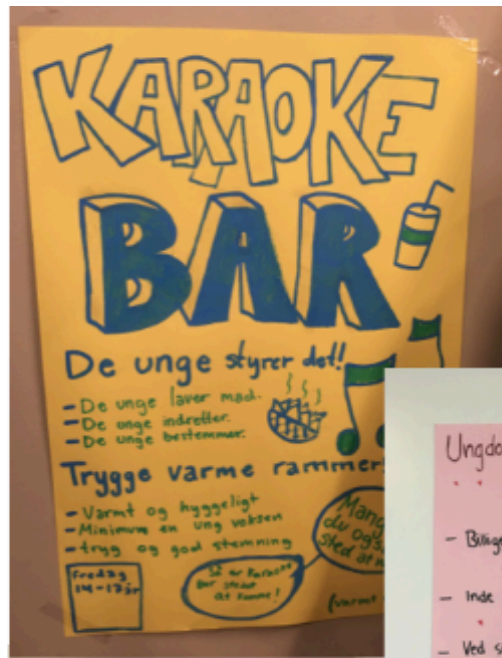 KARAOKE
BAR
De unge styrer det!
- De unge laver mad.
- De unge indretter.
- De unge bestemmer.
Trygge varme rammer
- Varmt og hyggeligt
- Minimum en ung voksen
- tryg og god stemning
Fredag
14-17 år
Så er Karaoke
Bar stedet
at komme!
du også
sted at
(varmt
- Billige
- Inde
- Ved